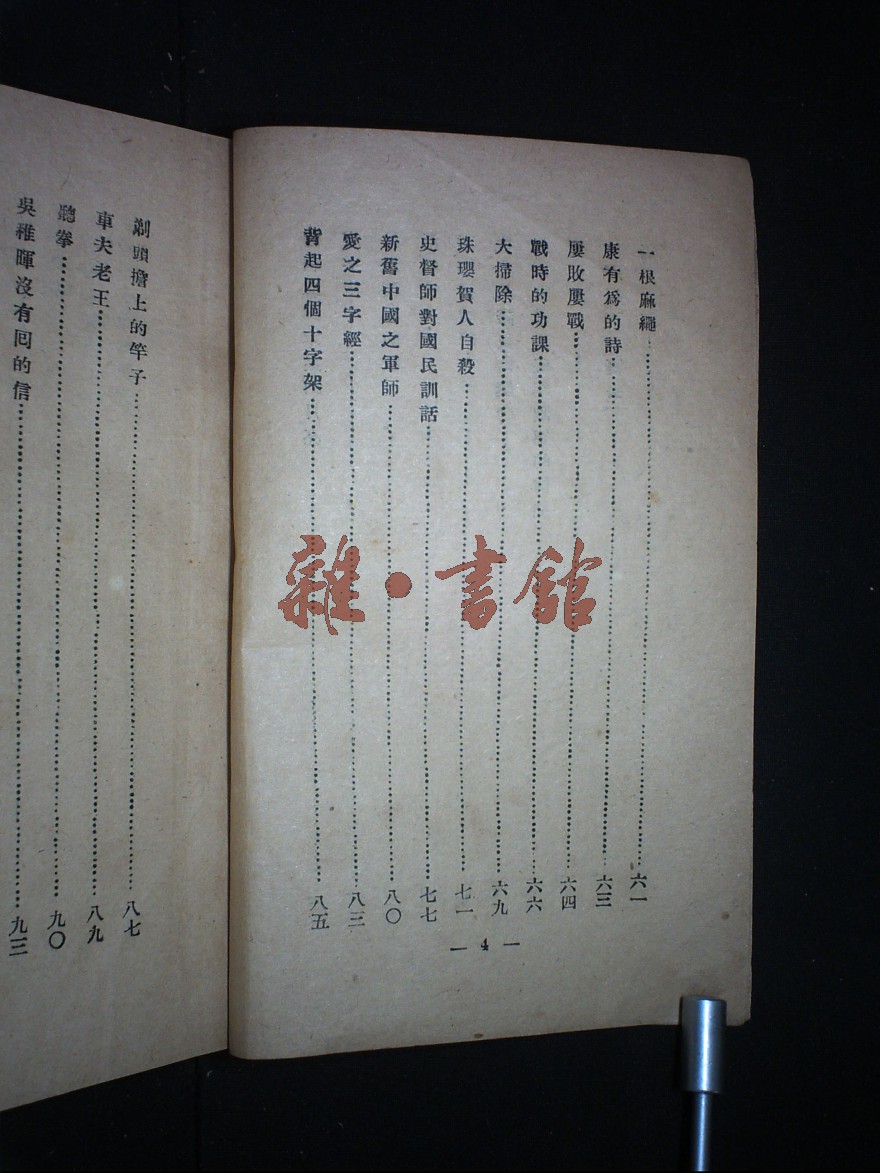 一根麻繩……六一
康有爲的詩……六三
屢敗屢戰……六四
戰時的功課……六六
大掃除……六九
珠瓔賀人自殺……七一
史督師對國民訓話……七七
新舊中國之軍師……八〇
愛之三字經……八三
背起四個十字架……八五
— 4 —
剃頭擔上的竿子……八七
車夫老王……八九
聽拳……九〇
吳稚暉沒有回的信……九三
雜·書館